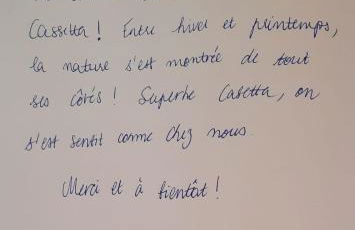 Cassetta ! Entre hiver et printemps,
la nature s'est montrée de tout
ses côtés ! Superbe Casetta, on
s'est sentit comme chez nous.
Merci et à bientôt !